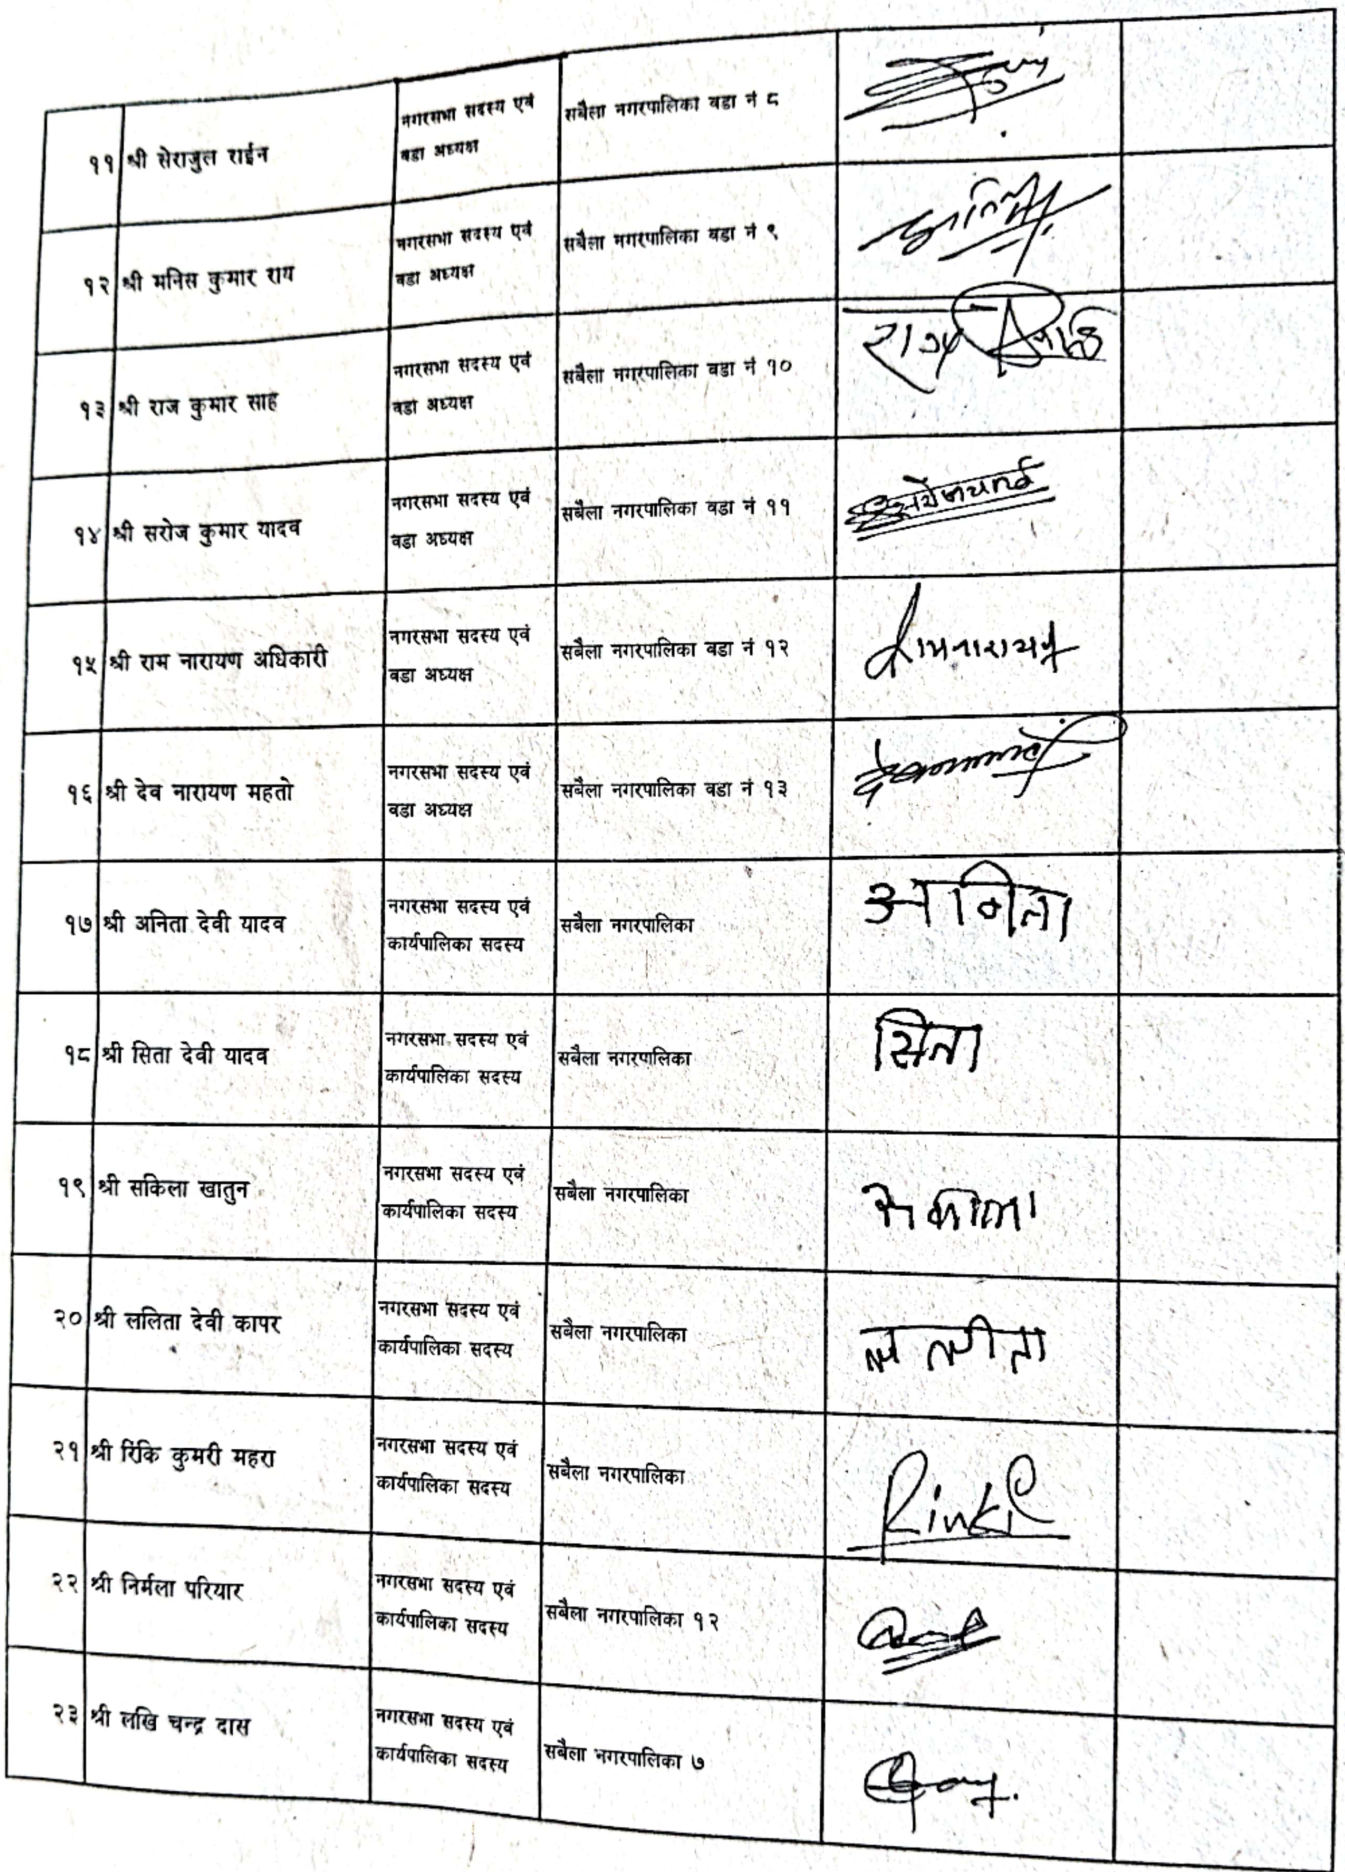 ११ श्री सेराजुल राईन नगरसभा सदस्य एवं वडा अध्यक्ष सबैला नगरपालिका वडा नं ८
१२ श्री मनिस कुमार राय नगरसभा सदस्य एवं वडा अध्यक्ष सबैला नगरपालिका वडा नं ९
१३ श्री राज कुमार साह नगरसभा सदस्य एवं वडा अध्यक्ष सबैला नगरपालिका वडा नं १०
१४ श्री सरोज कुमार यादव नगरसभा सदस्य एवं वडा अध्यक्ष सबैला नगरपालिका वडा नं ११
१५ श्री राम नारायण अधिकारी नगरसभा सदस्य एवं वडा अध्यक्ष सबैला नगरपालिका वडा नं १२ रामनारायण
१६ श्री देव नारायण महतो नगरसभा सदस्य एवं वडा अध्यक्ष सबैला नगरपालिका वडा नं १३
१७ श्री अनिता देवी यादव नगरसभा सदस्य एवं कार्यपालिका सदस्य सबैला नगरपालिका अनिता
१८ श्री सिता देवी यादव नगरसभा सदस्य एवं कार्यपालिका सदस्य सबैला नगरपालिका सिता
१९ श्री सकिला खातुन नगरसभा सदस्य एवं कार्यपालिका सदस्य सबैला नगरपालिका
२० श्री ललिता देवी कापर नगरसभा सदस्य एवं कार्यपालिका सदस्य सबैला नगरपालिका ललीता
२१ श्री रिंकि कुमरी महरा नगरसभा सदस्य एवं कार्यपालिका सदस्य सबैला नगरपालिका Rinki
२२ श्री निर्मला परियार नगरसभा सदस्य एवं कार्यपालिका सदस्य सबैला नगरपालिका १२
२३ श्री लखि चन्द्र दास नगरसभा सदस्य एवं कार्यपालिका सदस्य सबैला नगरपालिका ७